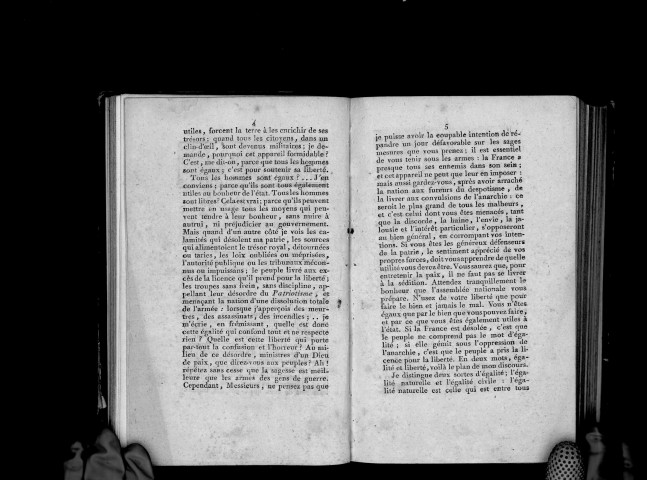 4
utiles, forcent la terre à les enrichir de ses
trésors; quand tous les citoyens, dans un
clin-d'œil, sont devenus militaires; je de-
mande, pourquoi cet appareil formidable?
C'est, me dit-on, parce que tous les hommes
sont égaux; c'est pour soutenir sa liberté.
Tous les hommes sont égaux?... J'en
conviens; parce qu'ils sont tous également
utiles au bonheur de l'état. Tous les hommes
sont libres? Cela est vrai; parce qu'ils peuvent
mettre en usage tous les moyens qui peu-
vent tendre à leur bonheur, sans nuire à
autrui, ni préjudicier au gouvernement.
Mais quand d'un autre côté je vois les ca-
lamités qui désolent ma patrie, les sources
qui alimentoient le trésor royal, détournées
ou taries, les loix oubliées ou méprisées,
l'autorité publique ou les tribunaux mécon-
nus ou impuissans; le peuple livré aux ex-
cès de la licence qu'il prend pour la liberté;
les troupes sans frein, sans discipline, ap-
pellant leur désordre du Patriotisme, et
menaçant la nation d'une dissolution totale
de l'armée: lorsque j'apperçois des meur-
tres, des assassinats, des incendies;.. je
m'écrie, en frémissant, quelle est donc
cette égalité qui confond tout et ne respecte
rien? Quelle est cette liberté qui porte
par-tout la confusion et l'horreur? Au mi-
lieu de ce désordre, ministres d'un Dieu
de paix, que direz-vous aux peuples? Ah!
répétez sans cesse que la sagesse est meil-
leure que les armes des gens de guerre.
Cependant, Messieurs, ne pensez pas que
5
je puisse avoir la coupable intention de ré-
pandre un jour défavorable sur les sages
mesures que vous prenez: il est essentiel
de vous tenir sous les armes: la France a
presque tous ses ennemis dans son sein;
et cet appareil ne peut que leur en imposer:
mais aussi gardez-vous, après avoir arraché
la nation aux fureurs du despotisme, de
la livrer aux convulsions de l'anarchie: ce
seroit le plus grand de tous les malheurs,
et c'est celui dont vous êtes menacés, tant
que la discorde, la haine, l'envie, la ja-
lousie et l'intérêt particulier, s'opposeront
au bien général, en corrompant vos inten-
tions. Si vous êtes les généreux défenseurs
de la patrie, le sentiment apprécié de vos
propres forces, doit vous apprendre de quelle
utilité vous devez être. Vous saurez que, pour
entretenir la paix, il ne faut pas se livrer
à la sédition. Attendez tranquillement le
bonheur que l'assemblée nationale vous
prépare. N'usez de votre liberté que pour
faire le bien et jamais le mal. Vous n'êtes
égaux que par le bien que vous pouvez faire,
et par ce que vous êtes également utiles à
l'état. Si la France est désolée, c'est que
le peuple ne comprend pas le mot d'éga-
lité; si elle gémit sous l'oppression de
l'anarchie, c'est que le peuple a pris la li-
cence pour la liberté. En deux mots, éga-
lité et liberté, voilà le plan de mon discours.
Je distingue deux sortes d'égalité; l'éga-
lité naturelle et l'égalité civile: l'éga-
lité naturelle est celle qui est entre tous